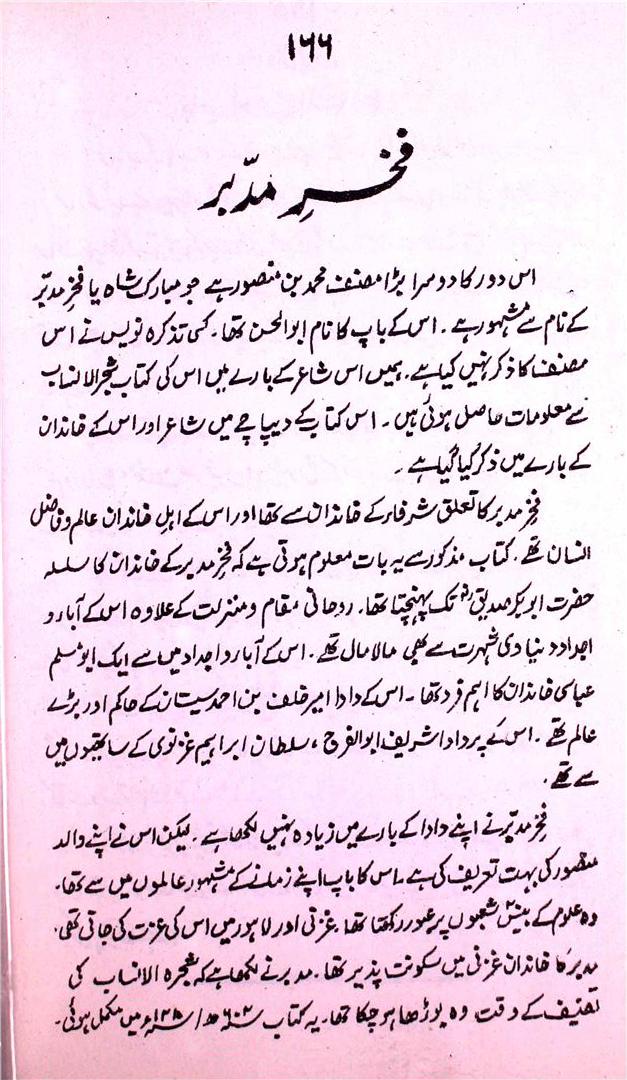 ۱۶۶
فخرِ مدبّر
اس دور کا دوسرا بڑا مصنف محمد بن منصور ہے جو مبارک شاہ یا فخرِ مدبّر
کے نام سے مشہور ہے۔ اس کے باپ کا نام ابوالحسن تھا۔ کسی تذکرہ نویس نے اس
مصنف کا ذکر نہیں کیا ہے۔ ہمیں اس شاعر کے بارے میں اس کی کتاب شجرالانساب
سے معلومات حاصل ہوئی ہیں۔ اس کتاب کے دیباچے میں شاعر اور اس کے خاندان
کے بارے میں ذکر کیا گیا ہے۔
فخرِ مدبر کا تعلق شرفاء کے خاندان سے تھا اور اس کے اہلِ خاندان عالم و فاضل
انسان تھے۔ کتاب مذکور سے یہ بات معلوم ہوتی ہے کہ فخرِ مدبر کے خاندان کا سلسلہ
حضرت ابوبکر صدیقؓ تک پہنچتا تھا۔ روحانی مقام و منزلت کے علاوہ اس کے آباء و
اجداد دنیاوی شہرت سے بھی مالا مال تھے۔ اس کے آباء و اجداد میں سے ایک ابومسلم
عباسی خاندان کا اہم فرد تھا۔ اس کے دادا امیر خلف بن احمد سیستان کے حاکم اور بڑے
عالم تھے۔ اس کے پردادا شریف ابوالفرج، سلطان ابراہیم غزنوی کے ساتھیوں میں
سے تھے۔
فخرِ مدبّر نے اپنے دادا کے بارے میں زیادہ نہیں لکھا ہے۔ لیکن اس نے اپنے والد
منصور کی بہت تعریف کی ہے۔ اس کا باپ اپنے زمانے کے مشہور عالموں میں سے تھا۔
وہ علوم کے بیس شعبوں پر عبور رکھتا تھا۔ غزنی اور لاہور میں اس کی عزت کی جاتی تھی۔
مدبر کا خاندان غزنی میں سکونت پذیر تھا۔ مدبر نے لکھا ہے کہ شجرہ الانساب کی
تصنیف کے وقت وہ بوڑھا ہو چکا تھا۔ یہ کتاب ۶۰۲ھ/ میں مکمل ہوئی۔